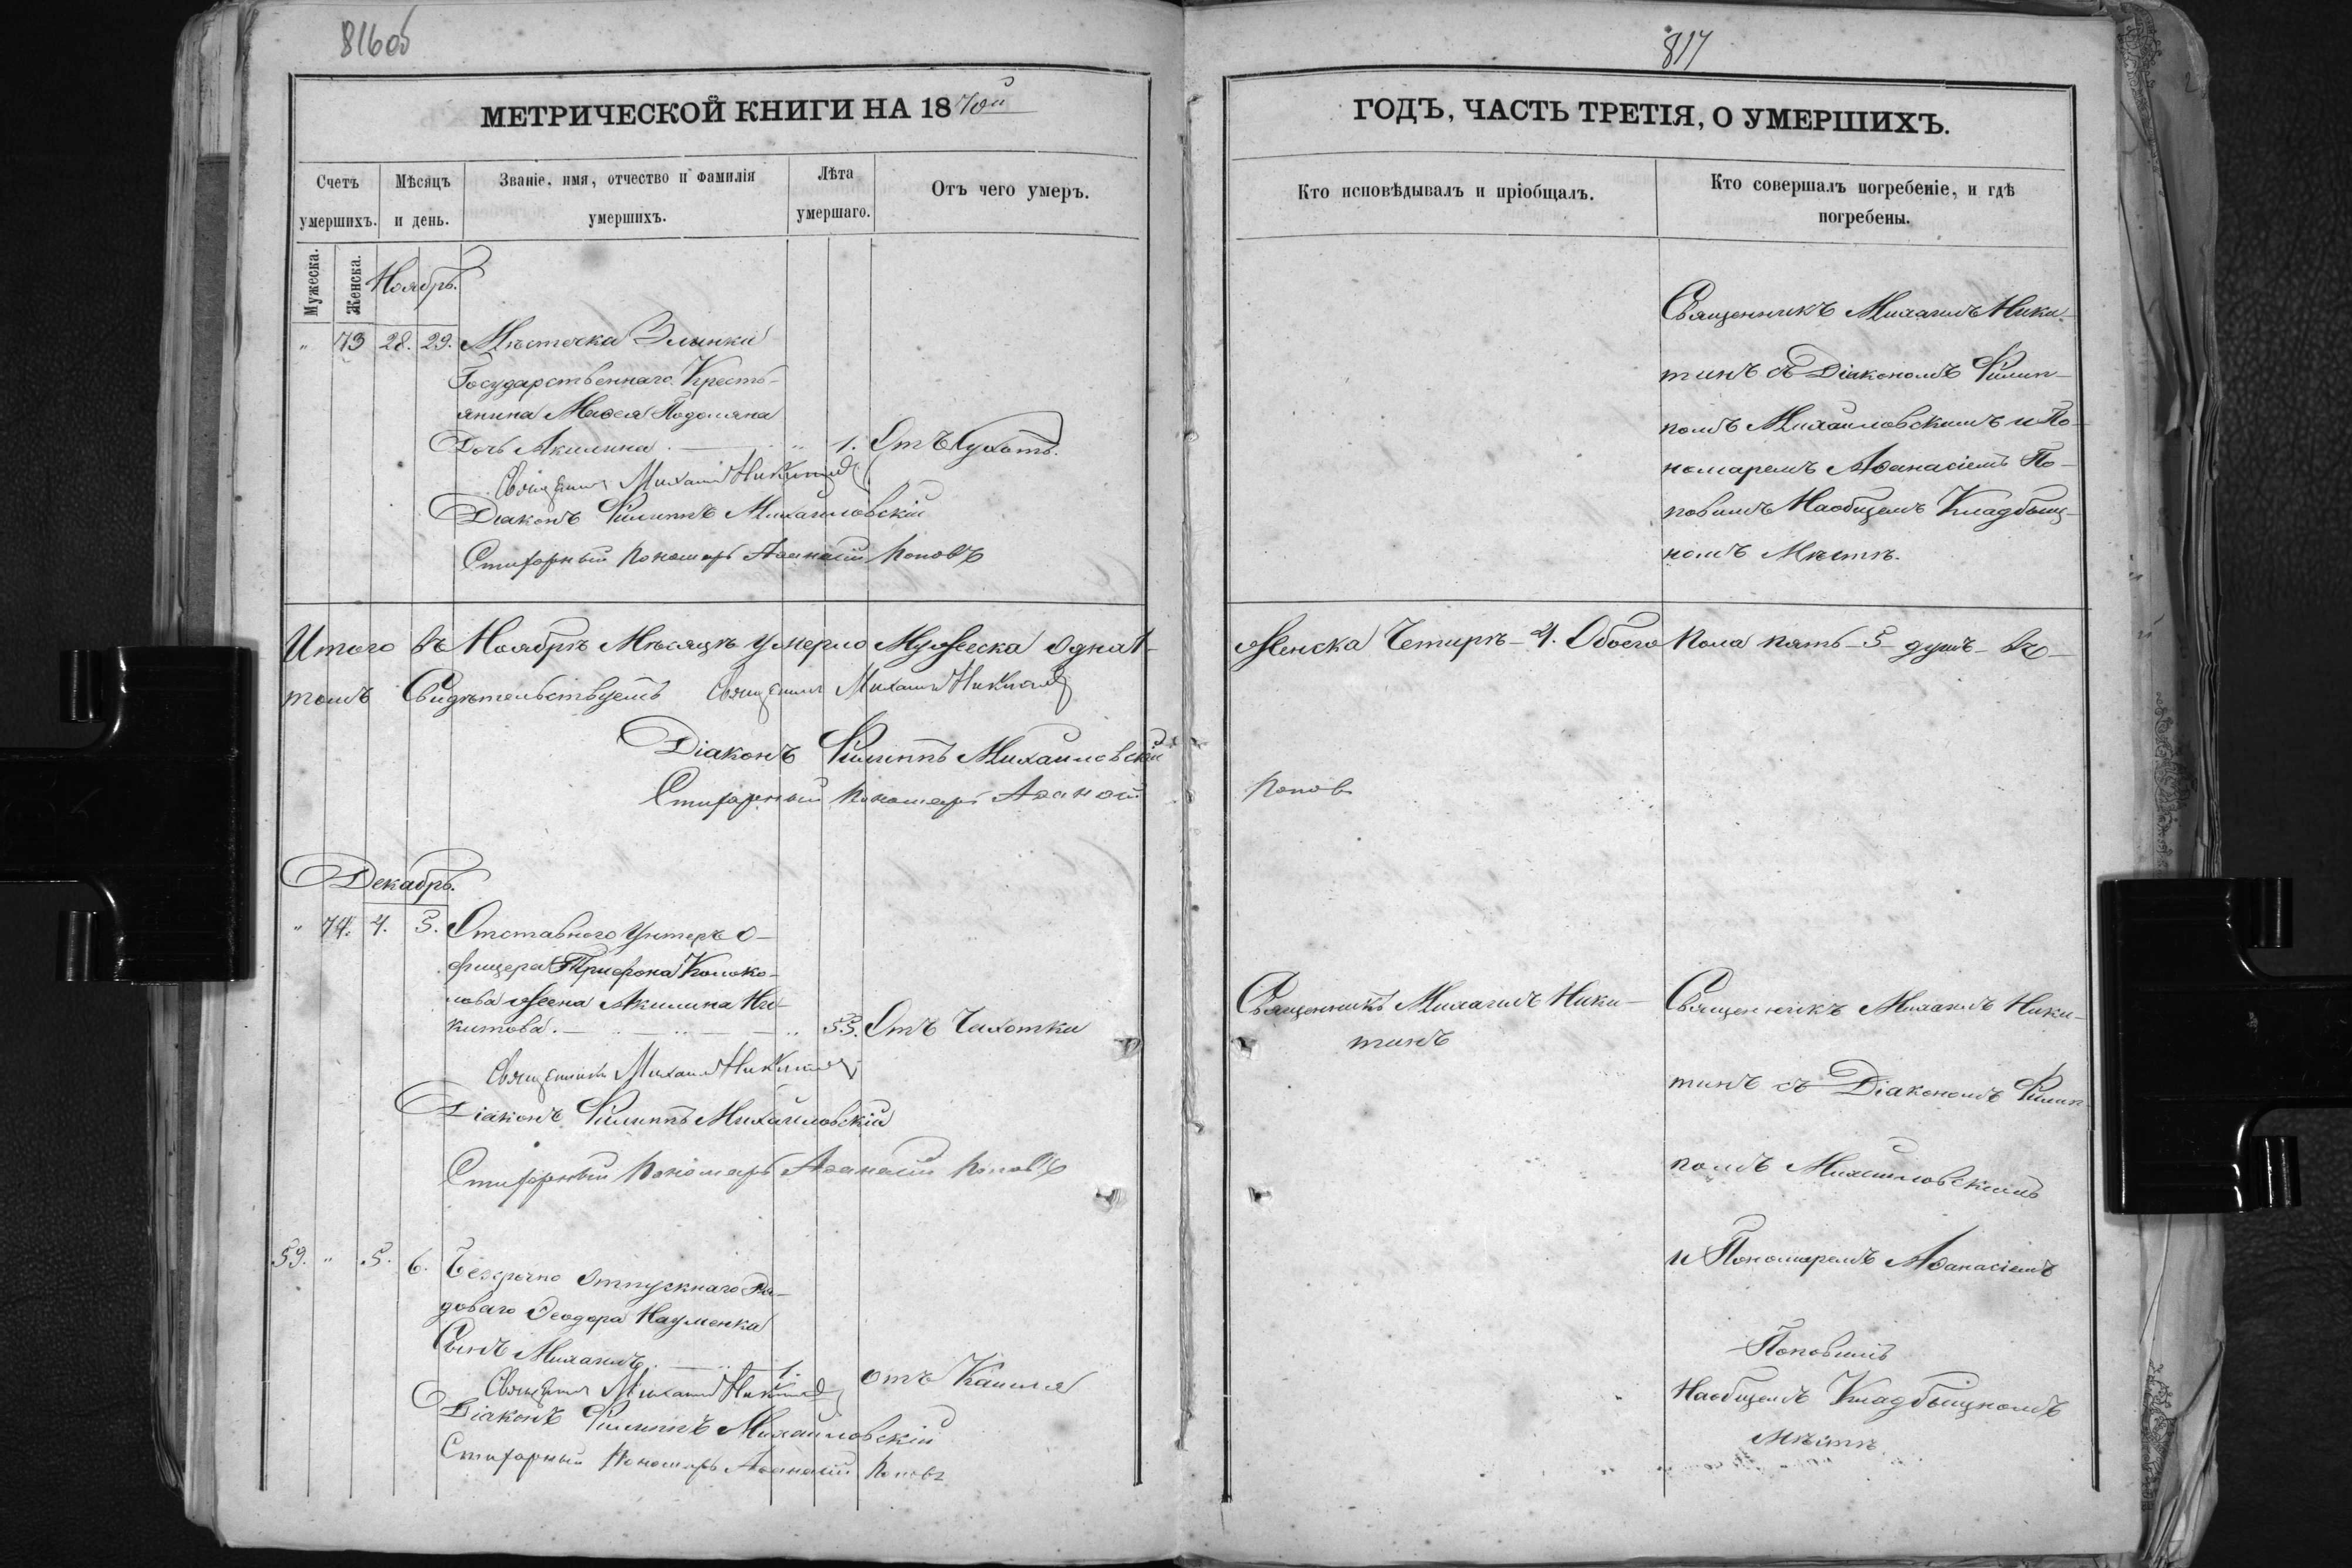 816об
МЕТРИЧЕСКОЙ КНИГИ НА 1870й
Счетъ умершихъ.
Мѣсяцъ и день.
Званіе, имя, отчество и фамилія умершихъ.
Лѣта умершаго.
Отъ чего умеръ.
Мужеска.
Женска.
Ноябрь.
" 73 28. 29. Мѣстечка Злынки
Государственнаго Кресть-
янина Моѵсея Подоляна
Дочь Акилина. — " 1. Отъ Сухотъ.
Священникъ Михаилъ Никитинъ
Діаконъ Филиппъ Михайловскій
Стихарный Пономарь Аѳанасій Поповъ
Итого въ Ноябрѣ Мѣсяцѣ умерло Мужеска одна 1-
томъ Свидѣтельствуемъ Священникъ Михаилъ Никитинъ
Діаконъ Филиппъ Михайловскій
Стихарный Пономарь Аѳанасій
Декабрь.
" 74. 4. 5. Отставного Унтеръ О-
фицера Трифона Колоко-
лова жена Акилина Ни-
китова. — " 55. Отъ Чахотки
Священникъ Михаилъ Никитинъ
Діаконъ Филиппъ Михайловскій
Стихарный Пономарь Аѳанасій Поповъ
59. " 5. 6. Безсрочно Отпускнаго Ря-
доваго Ѳеодора Науменка
Сынъ Михаилъ. — 1. отъ Кашля
Священникъ Михаилъ Никитинъ
Діаконъ Филиппъ Михайловскій
Стихарный Пономарь Аѳанасій Поповъ
817
ГОДЪ, ЧАСТЬ ТРЕТІЯ, О УМЕРШИХЪ.
Кто исповѣдывалъ и пріобщалъ.
Кто совершалъ погребеніе, и гдѣ погребены.
Священникъ Михаилъ Ники-
тинъ съ Діакономъ Филип-
помъ Михайловскимъ и По-
номаремъ Аѳанасіемъ По-
повымъ На общемъ Кладбищ-
номъ Мѣстѣ.
Женска Четырѣ - 4. Обоего Пола пять - 5 душъ - въ -
Поповъ
Священникъ Михаилъ Ники-
тинъ
Священникъ Михаилъ Ники-
тинъ съ Діакономъ Филип-
помъ Михайловскимъ
и Пономаремъ Аѳанасіемъ
Поповымъ
На общемъ Кладбищномъ
Мѣстѣ